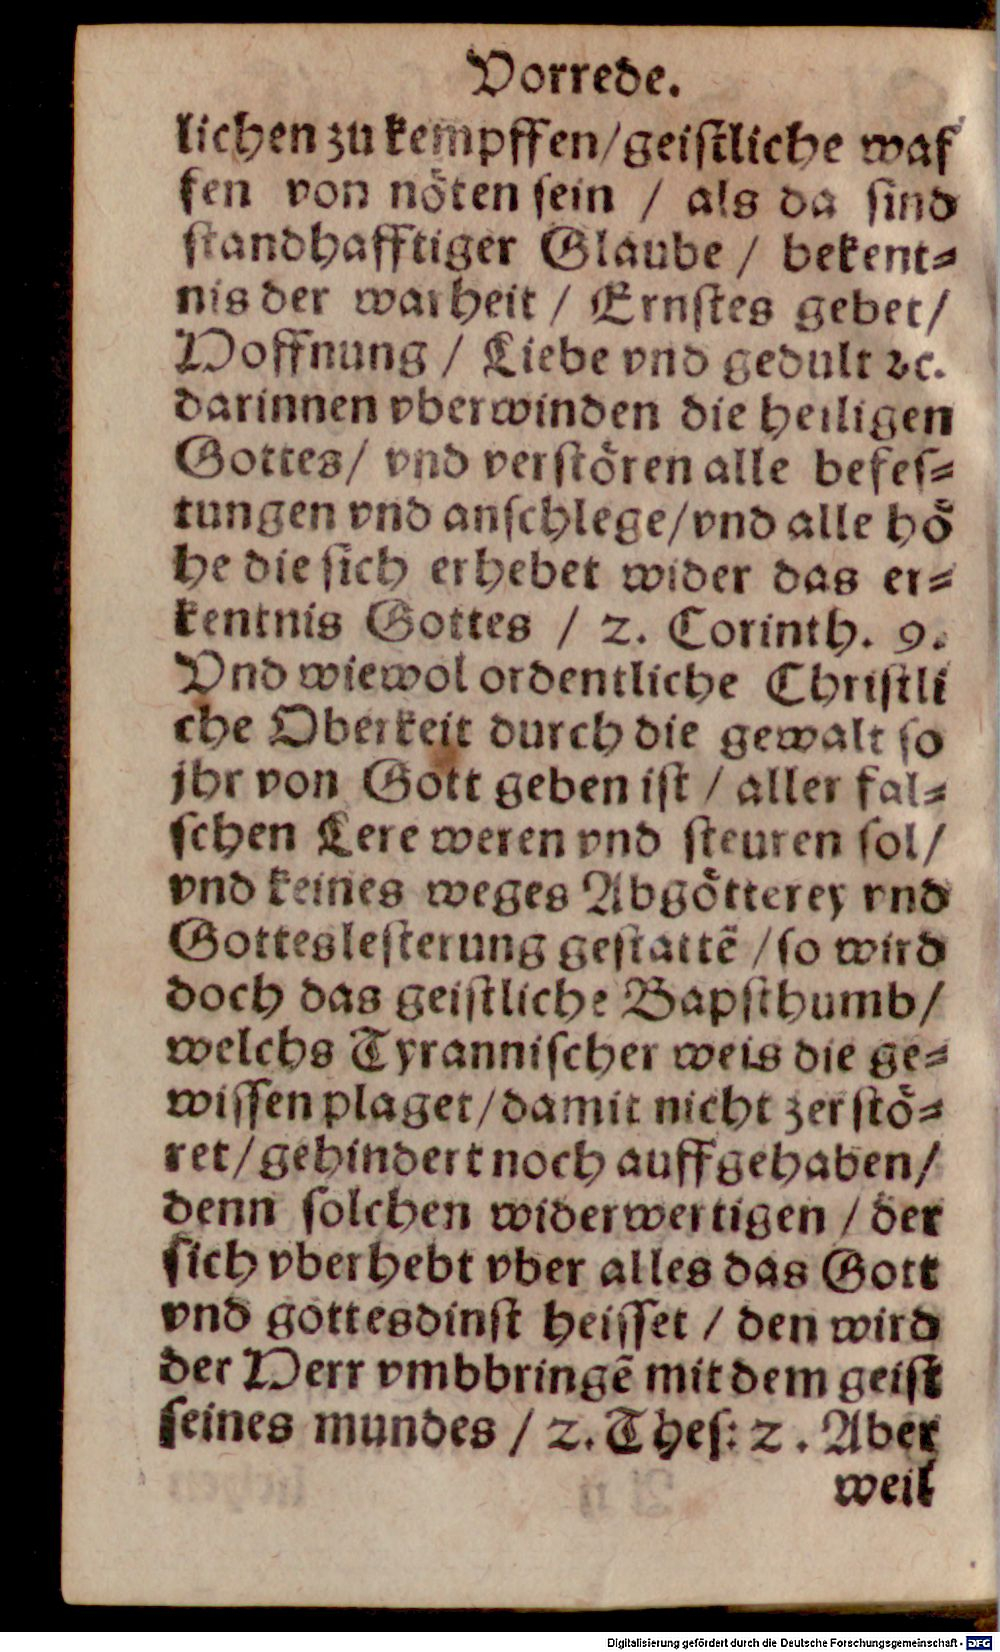 Vorrede.
lichen zu kempffen/geistliche waf
fen von nöten sein / als da sind
standhafftiger Glaube / bekent⸗
nis der warheit / Ernstes gebet/
Hoffnung / Liebe vnd gedult ꝛc.
darinnen vberwinden die heiligen
Gottes/ vnd verstören alle befes⸗
tungen vnd anschlege/vnd alle hö
he die sich erhebet wider das er⸗
kentnis Gottes / 2. Corinth. 9.
Vnd wiewol ordentliche Christli
che Oberkeit durch die gewalt so
jhr von Gott geben ist / aller fal⸗
schen Lere weren vnd steuren sol/
vnd keines weges Abgötterey vnd
Gotteslesterung gestattē /so wird
doch das geistliche Bapsthumb/
welchs Tyrannischer weis die ge⸗
wissen plaget/damit nicht zerstö⸗
ret/gehindert noch auffgehaben/
denn solchen widerwertigen / der
sich vberhebt vber alles das Gott
vnd gottesdinst heisset / den wird
der Herr vmbbringē mit dem geist
seines mundes / 2. Thes: 2. Aber
weil
Digitalisierung gefördert durch die Deutsche Forschungsgemeinschaft - DFG